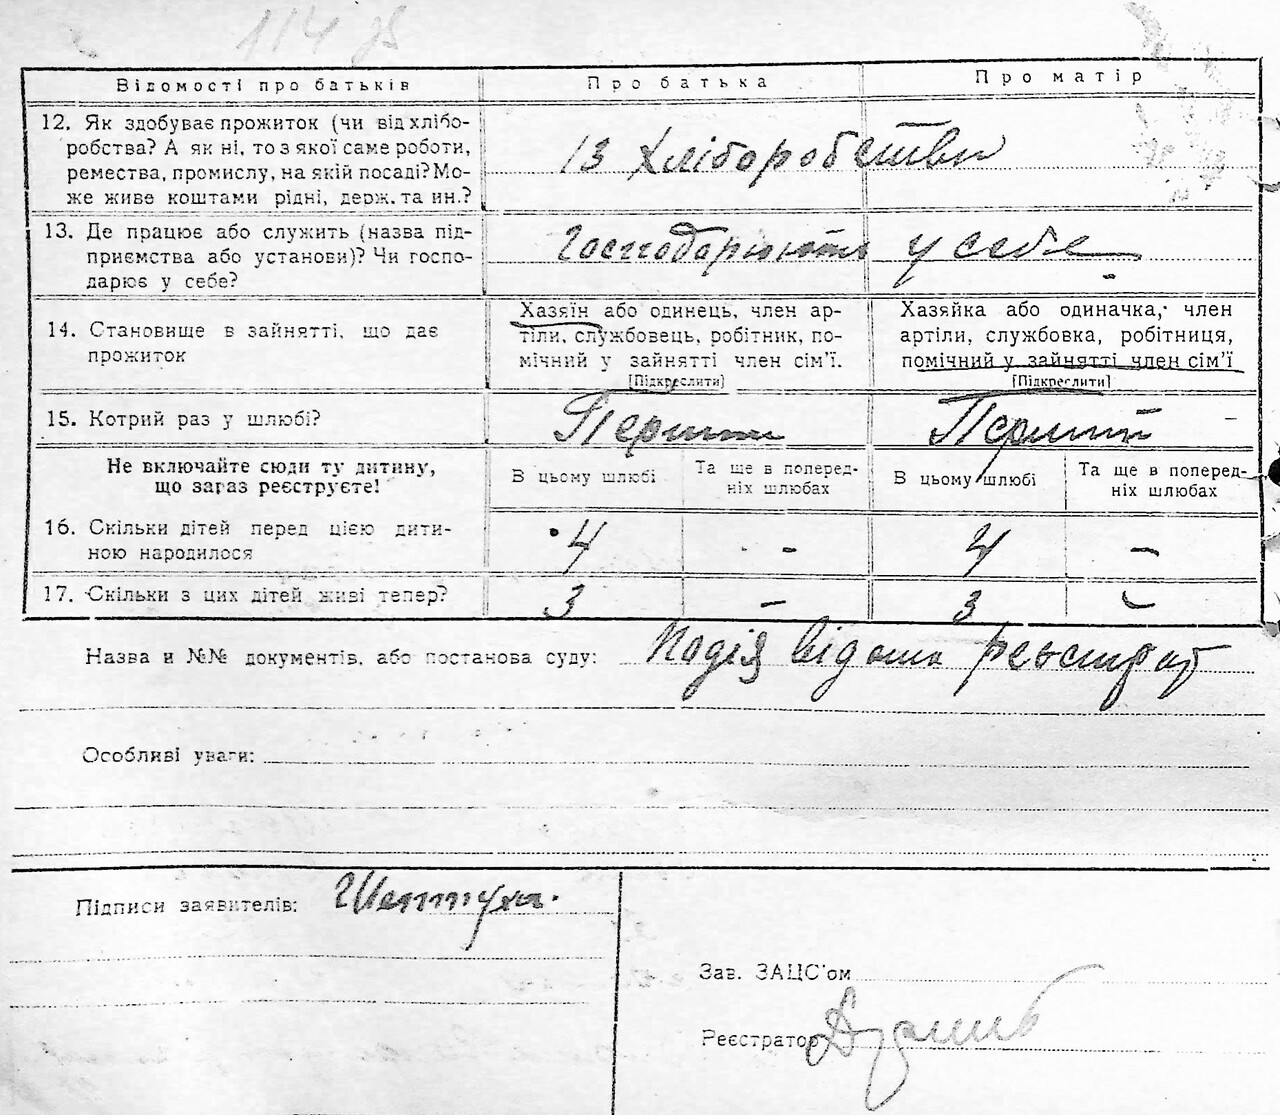 114 зв
Відомості про батьків
Про батька
Про матір
12. Як здобуває прожиток (чи від хлібо-
робства? А як ні, то з якої саме роботи,
ремества, промислу, на якій посаді? Мо-
же живе коштами рідні, держ. та ин.?
Із хліборобства
13. Де працює або служить (назва під-
приємства або установи)? Чи госпо-
дарює у себе?
Господарюють у себе
14. Становище в зайнятті, що дає
прожиток
Хазяїн або одинець, член ар-
тіли, службовець, робітник, по-
мічний у зайнятті член сім'ї.
[Підкреслити]
Хазяйка або одиначка, член
артіли, службовка, робітниця,
помічний у зайнятті член сім'ї
[Підкреслити]
15. Котрий раз у шлюбі?
Перший
Перший
Не включайте сюди ту дитину,
що зараз реєструєте!
В цьому шлюбі
Та ще в поперед-
ніх шлюбах
В цьому шлюбі
Та ще в поперед-
ніх шлюбах
16. Скільки дітей перед цією дити-
ною народилося
4
-
4
-
17. Скільки з цих дітей живі тепер?
3
-
3
-
Назва и №№ документів, або постанова суду: Подія відома реєстрат
Особливі уваги:
Підписи заявителів:
Зав. ЗАЦС'ом
Реєстратор